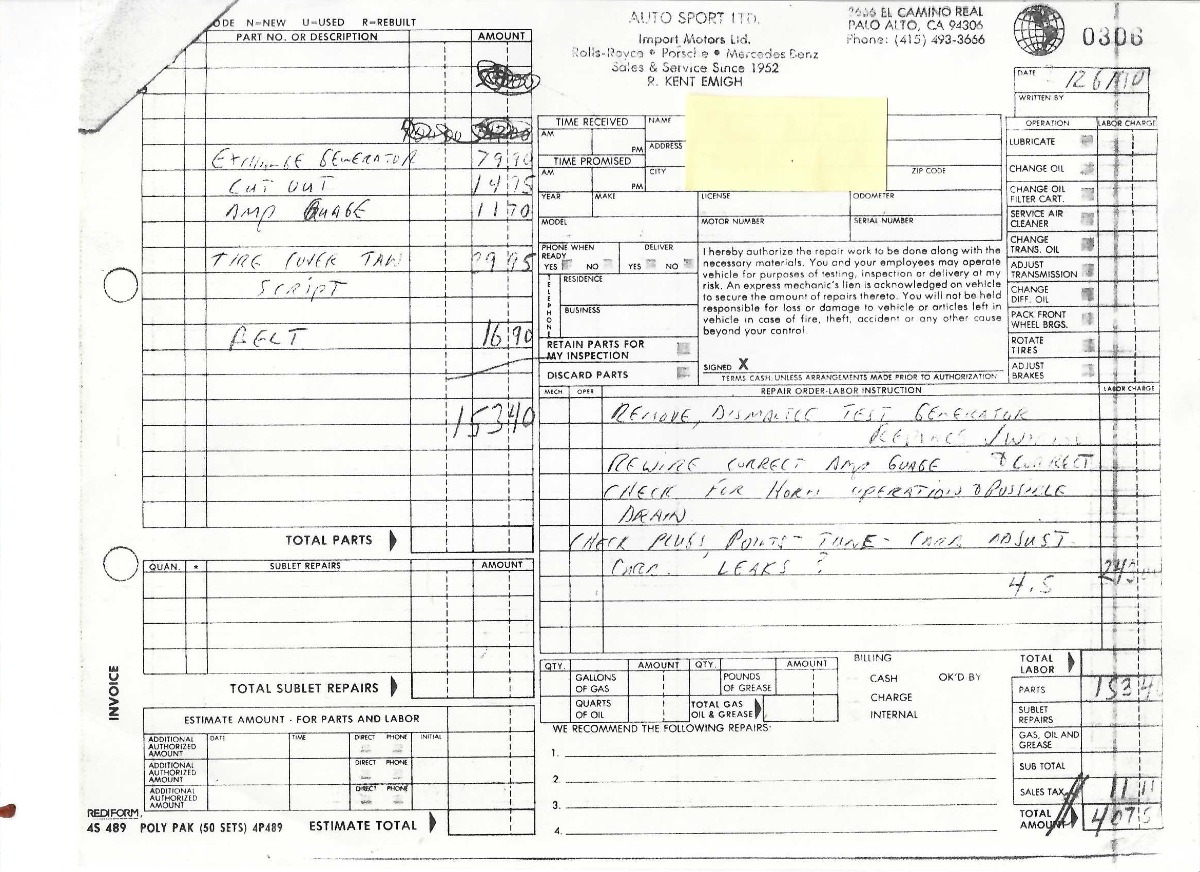 ODE N=NEW U=USED R=REBUILT
PART NO. OR DESCRIPTION AMOUNT
EXCHANGE GENERATOR 79 90
CUT OUT 14 95
AMP GUAGE 11 70
TIRE COVER TAN 29 95
SCRIPT
BELT 16 90
153 40
TOTAL PARTS
QUAN. * SUBLET REPAIRS AMOUNT
TOTAL SUBLET REPAIRS
INVOICE
ESTIMATE AMOUNT - FOR PARTS AND LABOR
ADDITIONAL AUTHORIZED AMOUNT DATE TIME DIRECT PHONE INITIAL
ADDITIONAL AUTHORIZED AMOUNT DIRECT PHONE
ADDITIONAL AUTHORIZED AMOUNT DIRECT PHONE
REDIFORM
4S 489 POLY PAK (50 SETS) 4P489 ESTIMATE TOTAL
AUTO SPORT LTD.
Import Motors Ltd.
Rolls-Royce • Porsche • Mercedes Benz
Sales & Service Since 1952
R. KENT EMIGH
EL CAMINO REAL
PALO ALTO, CA 94306
Phone: (415) 493-3666
0306
DATE
WRITTEN BY
TIME RECEIVED
AM
PM
TIME PROMISED
AM
PM
NAME
ADDRESS
CITY ZIP CODE
YEAR MAKE LICENSE ODOMETER
MODEL MOTOR NUMBER SERIAL NUMBER
PHONE WHEN READY DELIVER
YES NO YES NO
TELEPHONE
RESIDENCE
BUSINESS
RETAIN PARTS FOR
MY INSPECTION
DISCARD PARTS
I hereby authorize the repair work to be done along with the
necessary materials. You and your employees may operate
vehicle for purposes of testing, inspection or delivery at my
risk. An express mechanic's lien is acknowledged on vehicle
to secure the amount of repairs thereto. You will not be held
responsible for loss or damage to vehicle or articles left in
vehicle in case of fire, theft, accident or any other cause
beyond your control.
SIGNED X
TERMS CASH UNLESS ARRANGEMENTS MADE PRIOR TO AUTHORIZATION
OPERATION LABOR CHARGE
LUBRICATE
CHANGE OIL
CHANGE OIL
FILTER CART.
SERVICE AIR
CLEANER
CHANGE
TRANS. OIL
ADJUST
TRANSMISSION
CHANGE
DIFF. OIL
PACK FRONT
WHEEL BRGS.
ROTATE
TIRES
ADJUST
BRAKES
MECH OPER REPAIR ORDER-LABOR INSTRUCTION LABOR CHARGE
REMOVE, DISMANTLE TEST GENERATOR
REPLACE
REWIRE CORRECT AMP GUAGE & CORRECT
CHECK FOR HORN OPERATION & POSSIBLE
DRAIN
CHECK PLUGS, POINTS - TUNE - CARB ADJUST
CARB. LEAKS ?
4.5 243
QTY. AMOUNT QTY. AMOUNT
GALLONS
OF GAS
POUNDS
OF GREASE
QUARTS
OF OIL
TOTAL GAS
OIL & GREASE
BILLING
CASH OK'D BY
CHARGE
INTERNAL
WE RECOMMEND THE FOLLOWING REPAIRS:
1.
2.
3.
4.
TOTAL
LABOR
PARTS 153 4
SUBLET
REPAIRS
GAS, OIL AND
GREASE
SUB TOTAL
SALES TAX 11
TOTAL
AMOUNT 407